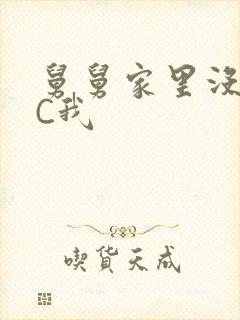 舅舅家里没
C我
喫货天成